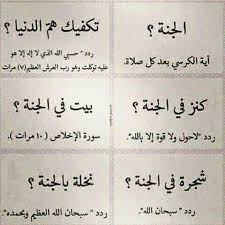 الجنة ؟
آية الكرسي بعد كل صلاة.
تكفيك هم الدنيا ؟
ردد " حسبي الله الذي لا إله إلا هو
عليه توكلت وهو رب العرش العظيم (٧) مرات
كنز في الجنة ؟
ردد "لاحول ولا قوة إلا بالله"
بيت في الجنة ؟
سورة الإخلاص (١٠ مرات ).
شجرة في الجنة ؟
ردد " سبحان الله".
نخلة بالجنة ؟
ردد " سبحان الله العظيم وبحمده".